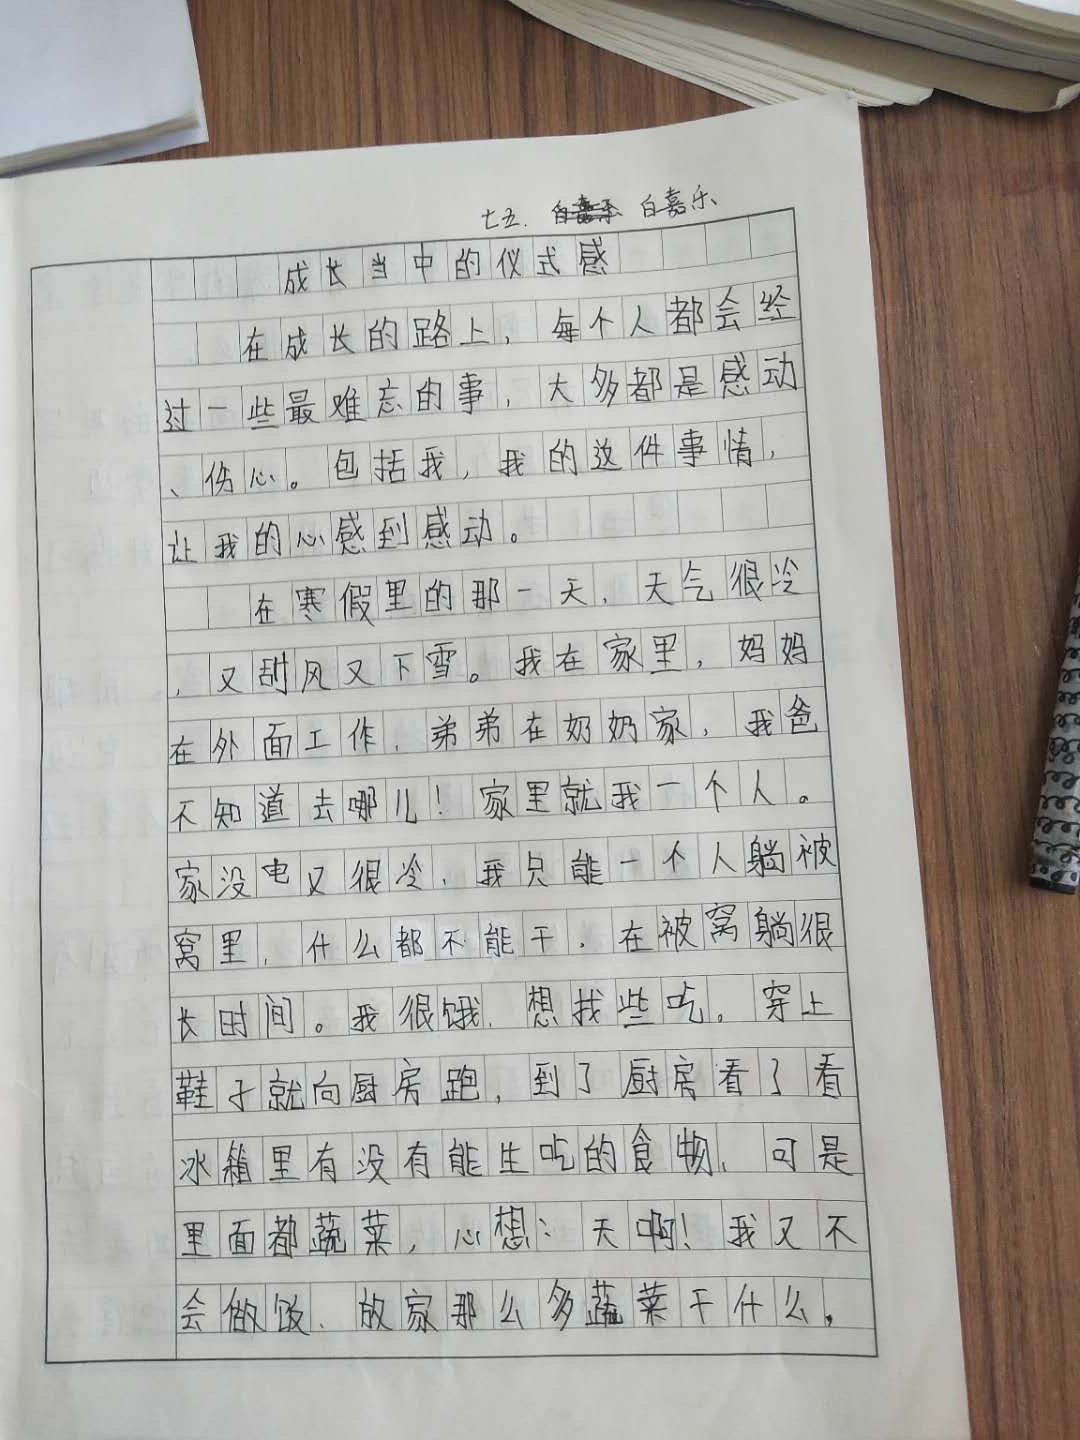 七五. 白嘉乐
成长当中的仪式感
在成长的路上，每个人都会经
过一些最难忘的事，大多都是感动
、伤心。包括我，我的这件事情，
让我的心感到感动。
在寒假里的那一天，天气很冷
，又刮风又下雪。我在家里，妈妈
在外面工作，弟弟在奶奶家，我爸
不知道去哪儿！家里就我一个人。
家没电又很冷，我只能一个人躺被
窝里，什么都不能干，在被窝躺很
长时间。我很饿，想找些吃。穿上
鞋子就向厨房跑，到了厨房看了看
冰箱里有没有能生吃的食物，可是
里面都蔬菜，心想：天啊！我又不
会做饭，放家那么多蔬菜干什么，